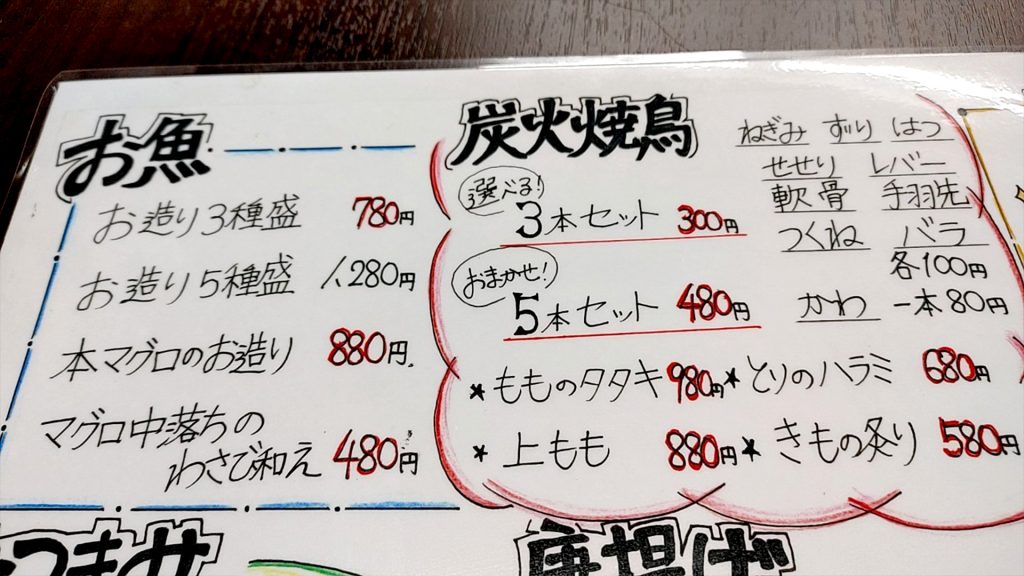 お魚
お造り3種盛 780円
お造り5種盛 1,280円
本マグロのお造り 880円
マグロ中落ちの
わさび和え 480円
炭火焼鳥
選べる!
3本セット 300円
おまかせ!
5本セット 480円
ねぎみ ずり はつ
せせり レバー
軟骨 手羽先
つくね バラ
各100円
かわ 一本80円
★もものタタキ 980円
★とりのハラミ 680円
★上もも 880円
★きもの炙り 580円
おつまみ
唐揚げ